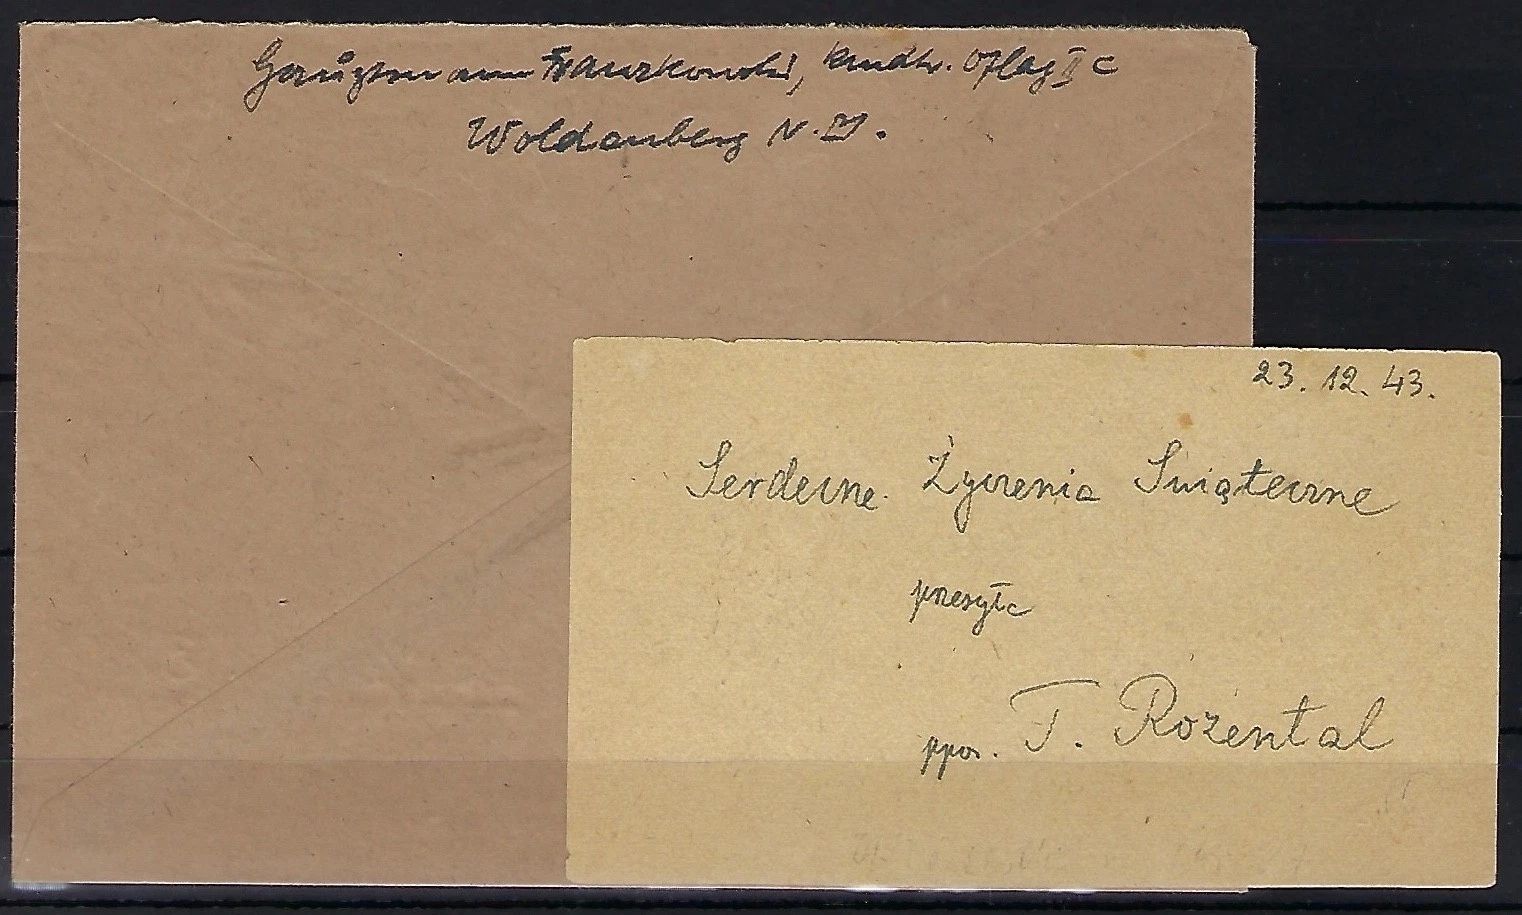 Hauptmann Frankowski, Kmdtr. Oflag II C
Woldenberg N.M.
23. 12. 43.
Serdeczne Życzenia Świąteczne
przesyła
ppor. T. Rozental